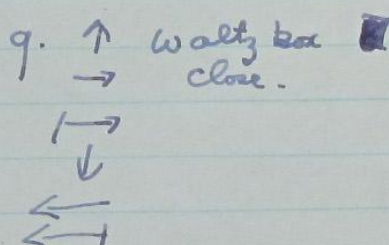 9. ↑ Waltz box
→ close.
|→
↓
←
←|